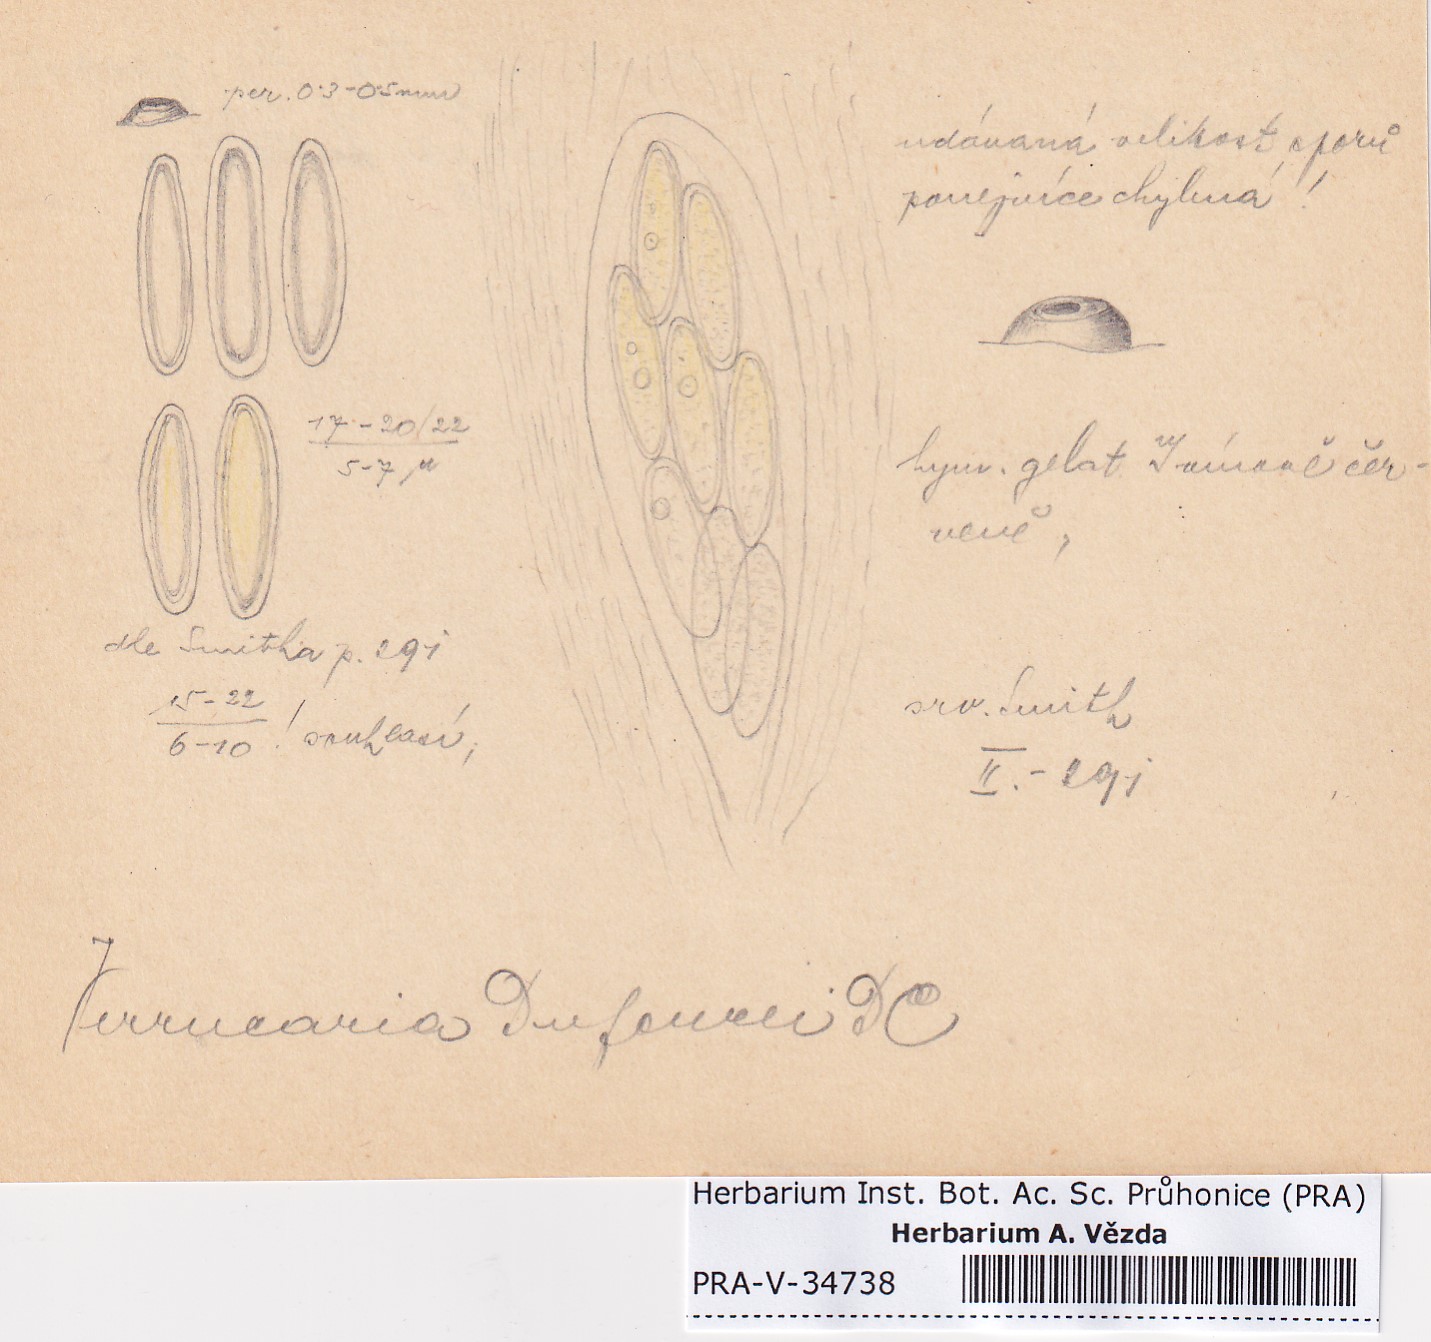 per. 0·3-0·5mm
udávaná velikost sporů
ponejvíce chybná!
17-20/22
5-7 μ
hym. gelat. J vínově čer-
veně,
dle Smitha p. 291
15-22
6-10 ! souhlasí;
srv. Smith
II. - 291
Verrucaria Dufourei DC
Herbarium Inst. Bot. Ac. Sc. Průhonice (PRA)
Herbarium A. Vězda
PRA-V-34738